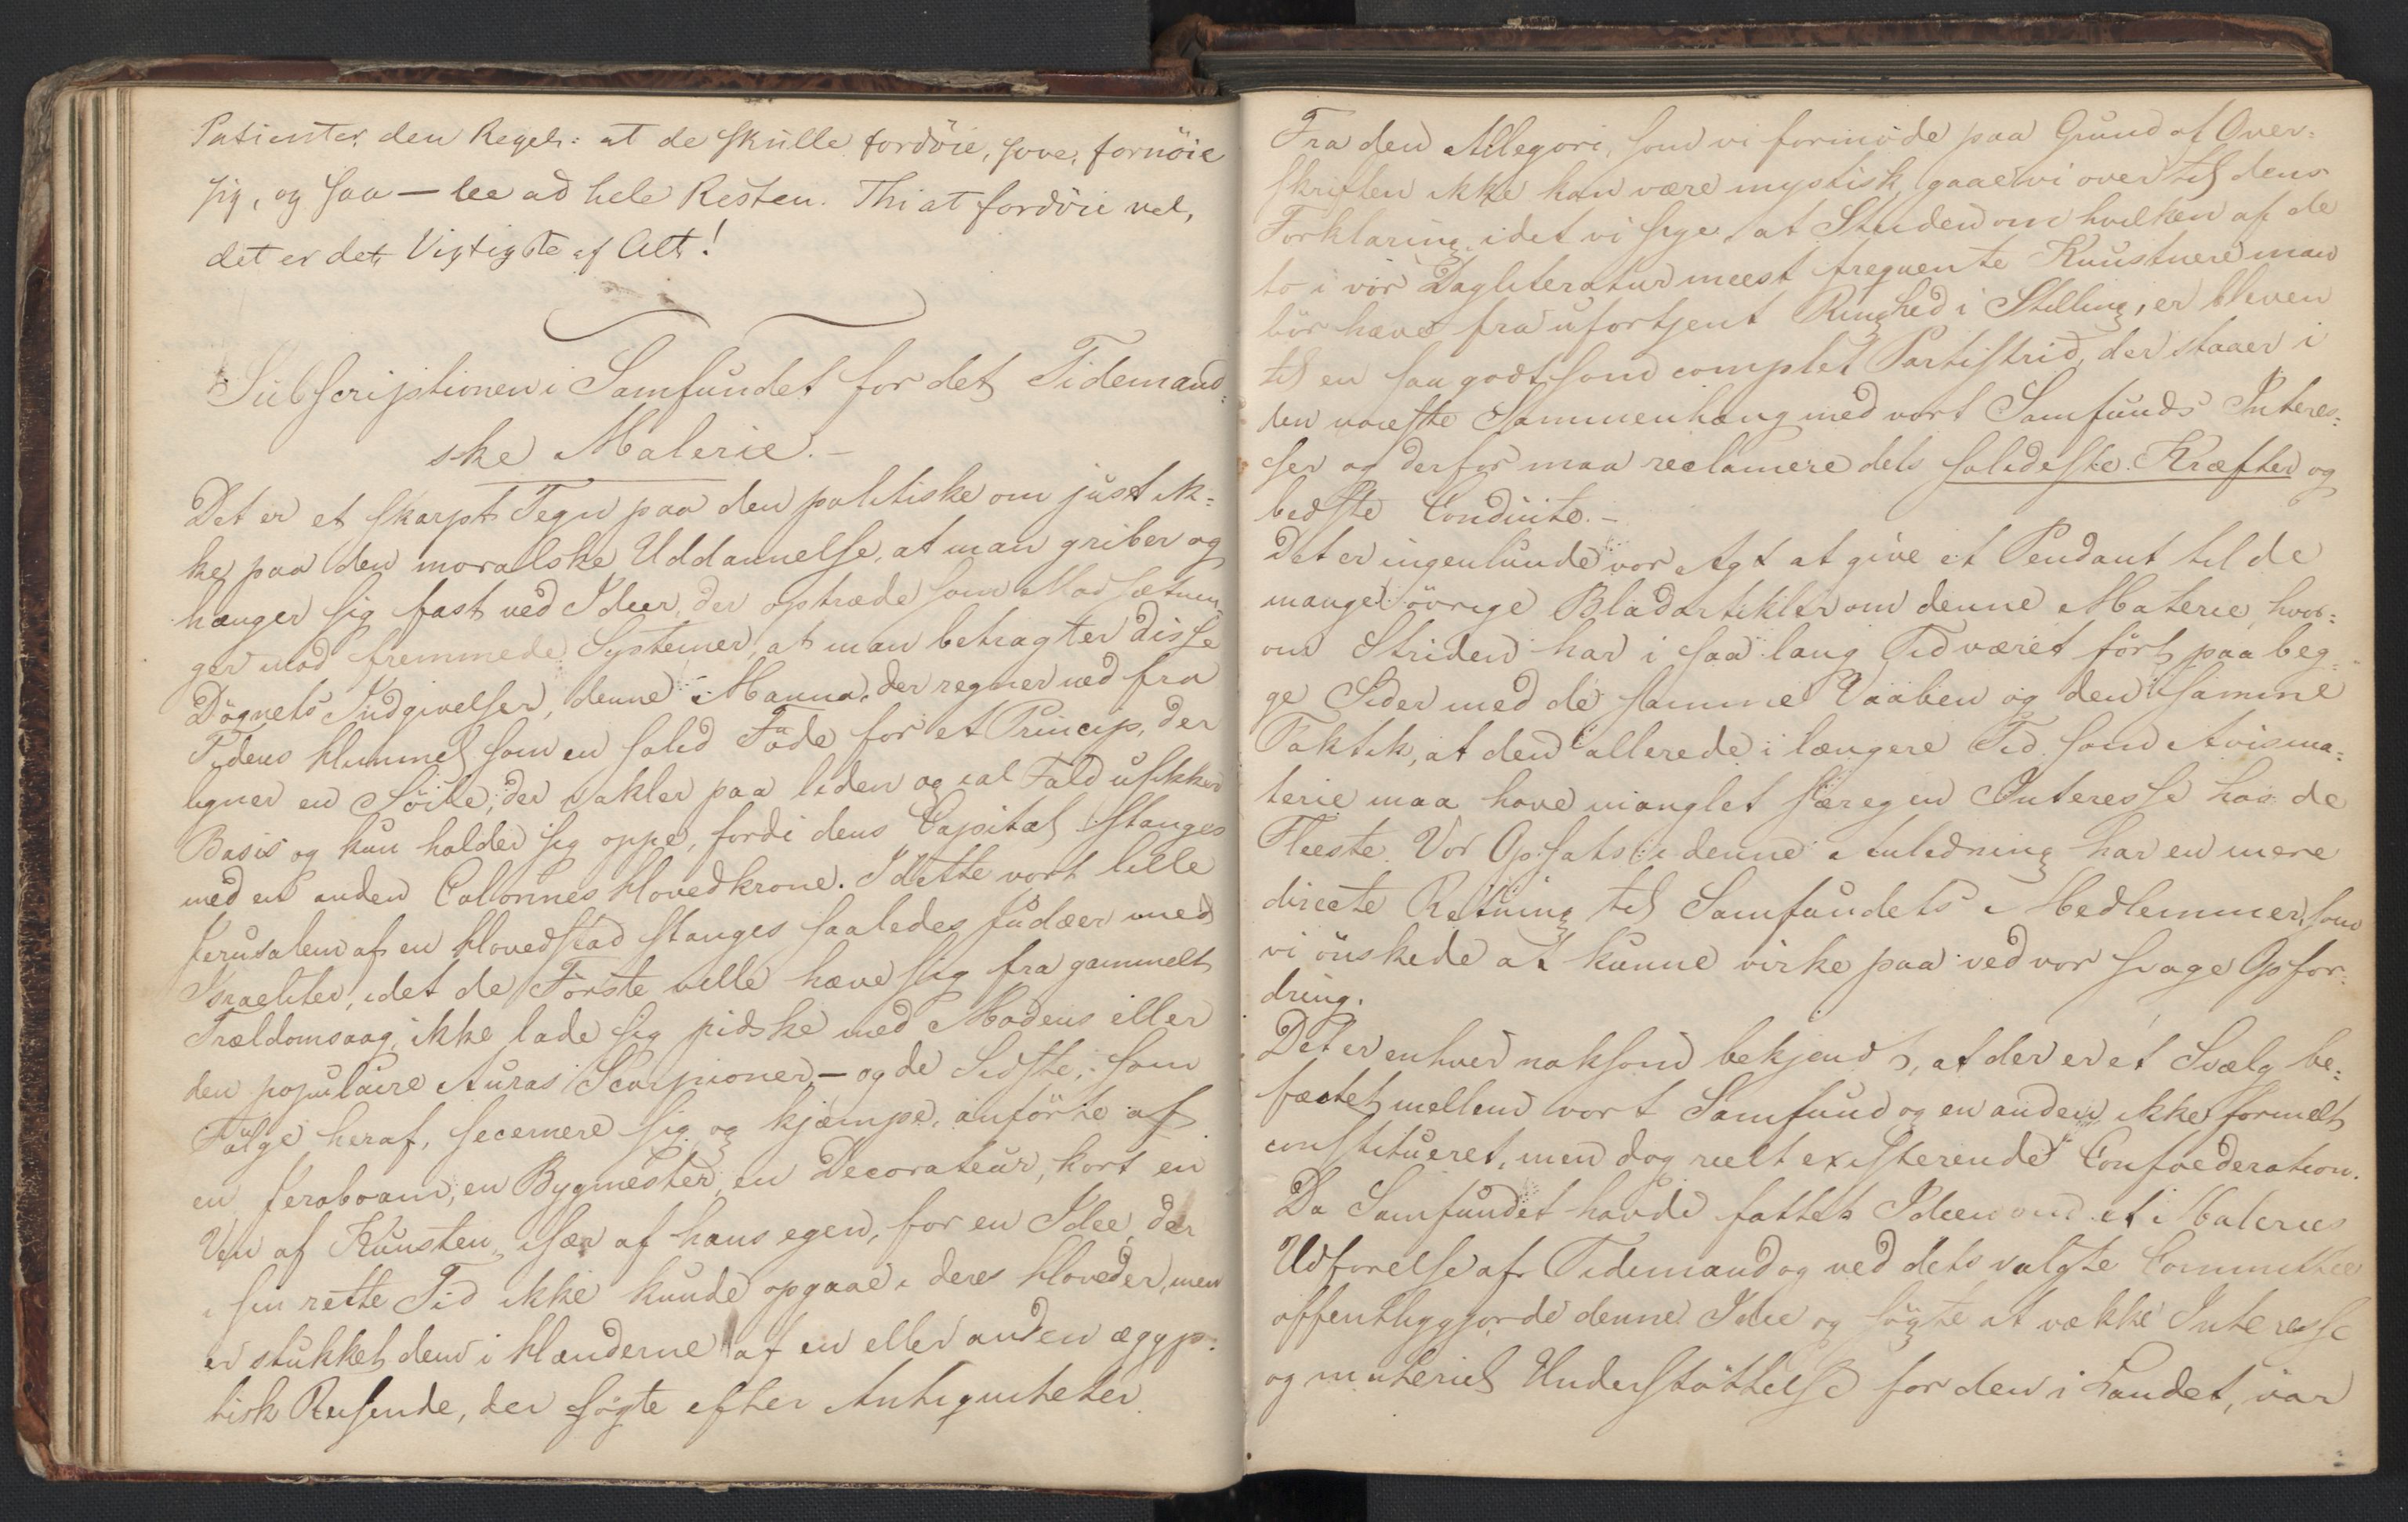 Patienter den Regel: at de skulle fordöie, sove, fornöie
sig, og saa — lee ad hele Resten. Thi at fordöie vel,
det er det Vigtigste af Alt!
Subscriptionen i Samfundet for det Tidemand-
ske Malerie.-
Det er et skarpt Tegn paa den politiske om just ik-
ke paa den moralske Uddannelse, at man griber og
hænger sig fast ved Ideer, der optræde som Modsætnin-
ger mod fremmede Systemer, at man betragter disse
Dögnets Indgivelser, denne Manna, der regner ned fra
Tidens Himmel som en solid Föde for et Princip, der
ligner en Söile, der vakler paa liden og ial Fald usikker
Basis og kun holder sig oppe, fordi dens Capital stanges
med en anden Colonnes Hovedkrone. I dette vort lille
Jerusalem af en Hovedstad stanges saaledes Judæer med
Israeliter, idet de Förste ville hæve sig fra gammelt
Trældomsaag, ikke lade sig pidske med Modens eller
den populaire Auras Scorpioner — og de Sidste, som
Fölge heraf, secernere sig og kjæmpe, anförte af
en Jeroboam, en Bygmester, en Decorateur, kort en
Ven af Kunsten, især af hans egen, for en Idee, der
i sin rette Tid ikke kunde opgaae i deres Hoveder, men
er stukket dem i Hænderne af en eller anden ægyp-
tisk Reisende, der sögte efter Antiquiteter.
Fra den Allegori, som vi formode paa Grund af Over-
skriften ikke kan være mystisk, gaae vi over til dens
Forklaring, idet vi sige, at Striden om hvilken af de
to i vor Dagliteratur meest frequente Kunstnere man
bör hæve fra ufortjent Ringhed i Stilling, er bleven
til en saa godt som complet Partistrid, der staaer i
den nöieste Sammenhæng med vort Samfunds Interes-
ser og derfor maa reclamere dets solideste Kræfter og
bedste Conduite.-
Det er ingenlunde vor Agt at give et Pendant til de
mange övrige Bladartikler om denne Materie, hvor-
om Striden har i saa lang Tid været fört paa beg-
ge Sider med de samme Vaaben og den samme
Taktik, at den allerede i længere Tid som Avisma-
terie maa have manglet særegen Interesse hos de
Fleeste. Vor Opsats i denne Anledning har en mere
directe Retning til Samfundets Medlemmer, som
vi önskede at kunne virke paa ved vor svage Opfor-
dring.
Det er enhver noksom bekjendt, at der er et Svælg be-
fæstet mellem vort Samfund og en anden ikke formelt
constitueret, men dog reelt existerende Confoederation.
Da Samfundet havde fattet Ideen om et Maleries
Udförelse af Tidemand og ved dets valgte Committee
offentliggjorde denne Idee og sögte at vække Interesse
og materiel Understöttelse for den i Landet, var